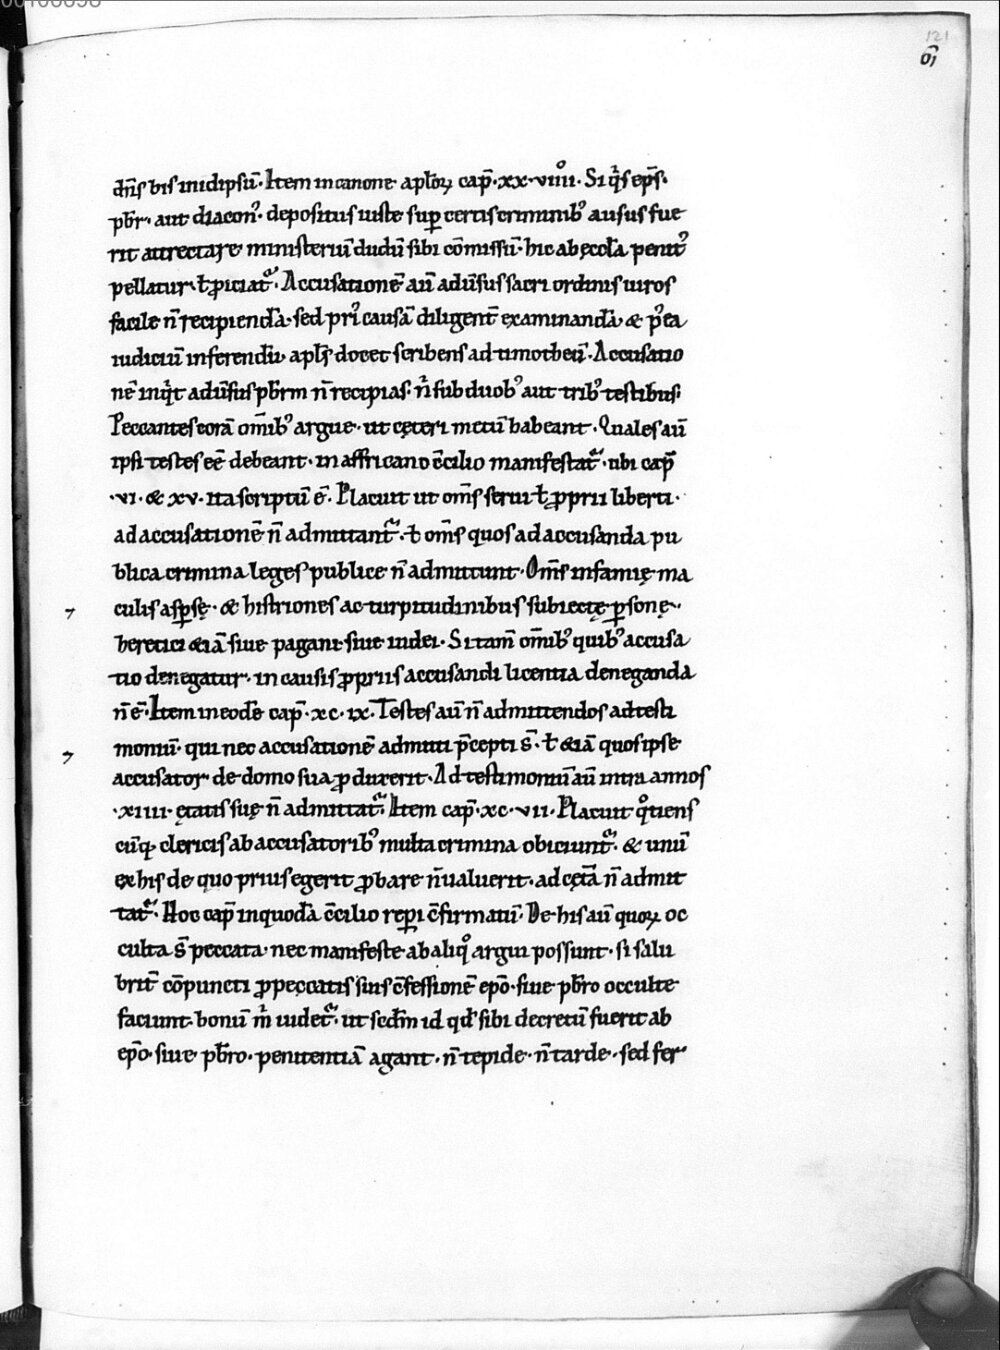 121
dn̄s bis inidipsū· Item in canone aplōꝝ cap̄·xx·viiiiº· Si q̇s ep̄s·
pb̄r· aut diacon᷒· depositus iuste suꝑ certis criminib᷒ ausus fue
rit attrectare ministeriū dudū sibi cōmissū· hic ab ęccla penit᷒
pellatur· ł ꝓiciat᷑· Accusationē aū adūsus sacri ordinis uiros
facile n̄ recipiendā· sed pri᷒ causā diligent̄ examinandā & p᷒ea
iudiciū inferendū· apls̄ docet scribens ad timotheū· Accusatio
nē inqͥt adūsus pb̄rm n̄ recipias· nͥ sub duob᷒ aut trib᷒ testibus·
Peccantes corā om̄ib᷒ argue· ut cęteri metū habeant· Quales aū
ipsi testes eē debeant· in affricano c̄cilio manifestat᷑· ubi cap̄
·vi· & xv· ita scriptū ē· Placuit ut om̄s serui ł ꝓprii liberti·
ad accusationē n̄ admittant᷑· ł om̄s quos ad accusanda pu
blica crimina leges publice n̄ admittunt· Om̄s infamię ma
culis asꝑsę· & histriones ac turpitudinibus subiectę ꝑsonę·
heretici &iā siue pagani siue iudei· Si tam̄ om̄ib᷒ quib᷒ accusa
tio denegatur· in causis ꝓpriis accusandi licentia deneganda
n̄ ē· Item in eodē cap̄·xc·ix· Testes aū n̄ admittendos ad testi
moniū· qui nec accusationē admitti p̄cepti s̄· ł &iā quos ipse
accusator de domo sua ꝓduxerit· Ad testimoniū aū intra annos
·xiiii· ętatis suę n̄ admittat᷑· Item cap̄·xc·vii· Placuit qͦtiens
cūq; clericis ab accusatorib᷒ multa crimina obiciunt᷑· & unū
ex his de quo prius egerit ꝓbare n̄ ualuerit· ad cęta n̄ admit
tat᷑· Hoc cap̄ in quodā c̄cilio reꝑi c̄firmatū· De his aū quoꝝ oc
culta s̄ peccata· nec manifeste ab aliqͦ argui possunt· si salu
brit̄ cōpuncti ꝓ peccatis suis c̄fessionē ep̄o· siue pb̄ro occulte
faciunt· bonū mͥ uidet᷑· ut scdm̄ id qđ sibi decretū fuerit ab
ep̄o· siue pb̄ro· penitentiā agant· n̄ tepide· n̄ tarde· sed fer